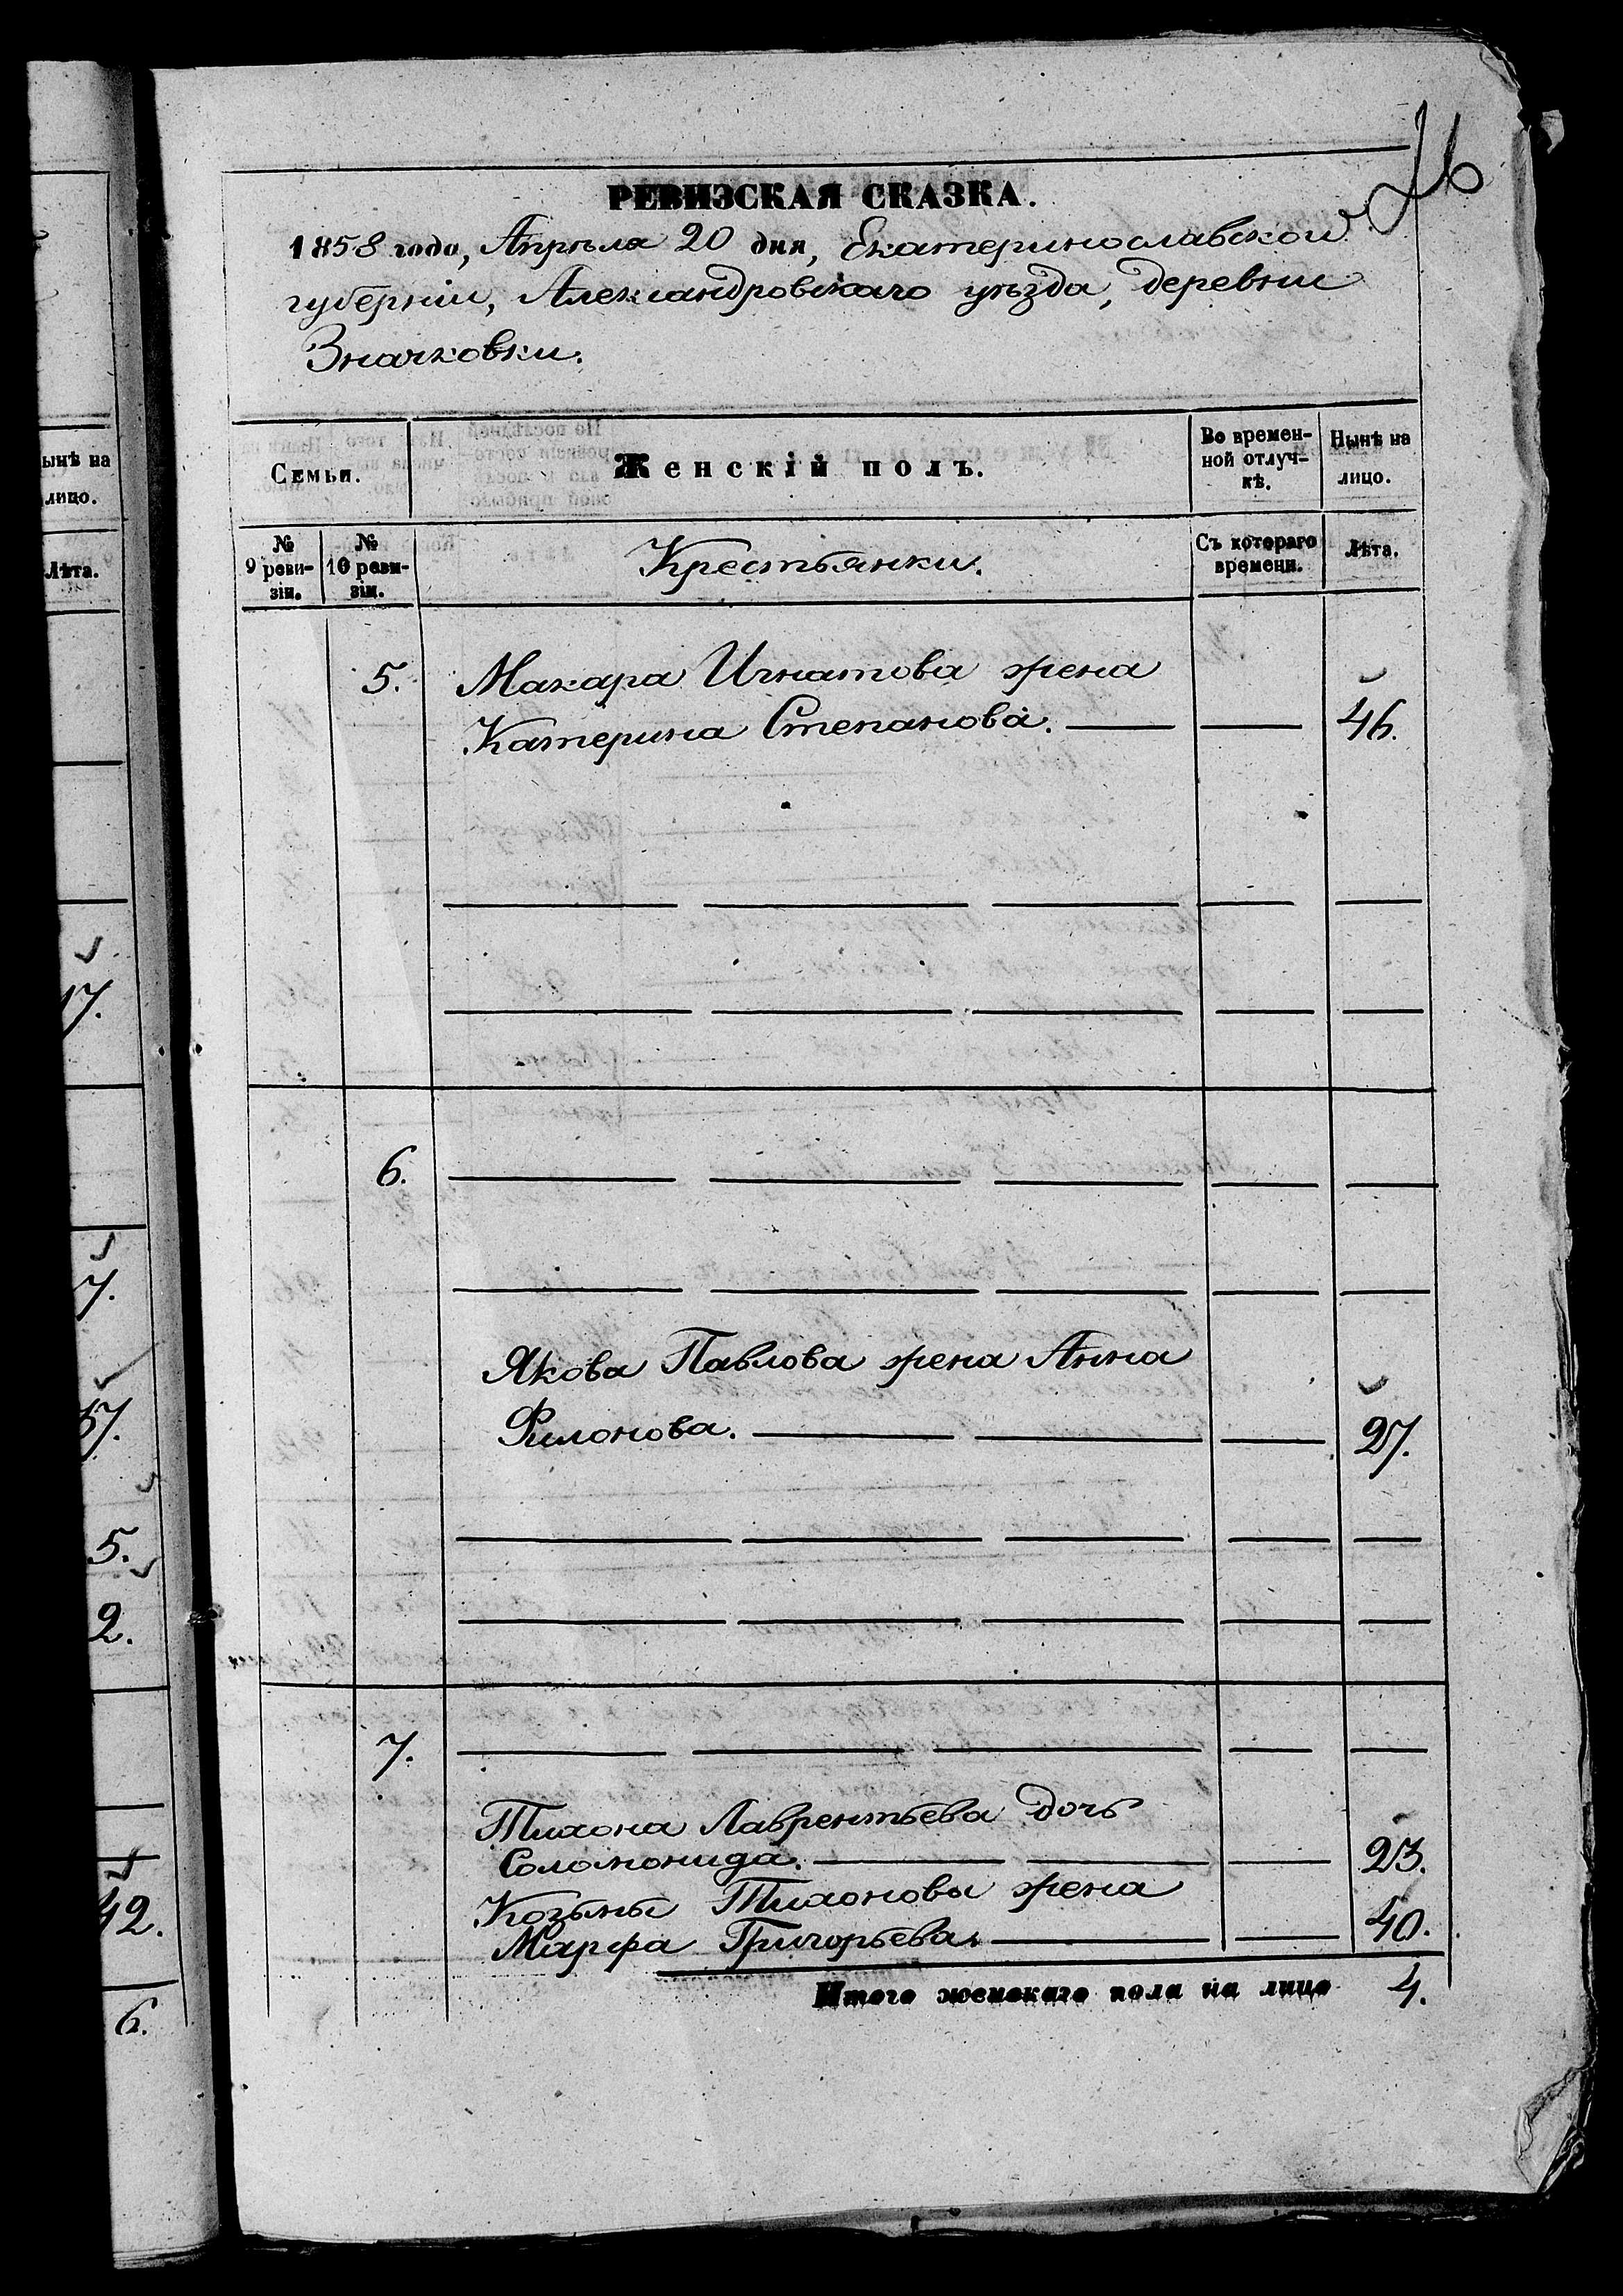 76
РЕВИЗСКАЯ СКАЗКА.
1858 года, Апрѣля 20 дня, Екатеринославской
губерніи, Александровскаго уѣзда, деревни
Значковки.
Семьи.
Женскій полъ.
Во времен-
ной отлуч-
кѣ.
Нынѣ на
лицо.
№
9 реви-
зіи.
№
10 реви-
зіи.
Крестьянки.
Съ котораго
времени.
Лѣта.
5. Макара Игнатова жена
Катерина Степанова. — — 46.
6.
Якова Павлова жена Анна
Филонова. — — — 27.
7.
Тихона Лаврентьева дочь
Соломонида. — — — 23.
Козьмы Тихонова жена
Марфа Григорьева. — — 40.
Итого женскаго пола на лицо 4.
ынѣ на
лицо.
Лѣта.
17.
7.
37.
5.
2.
42.
6.